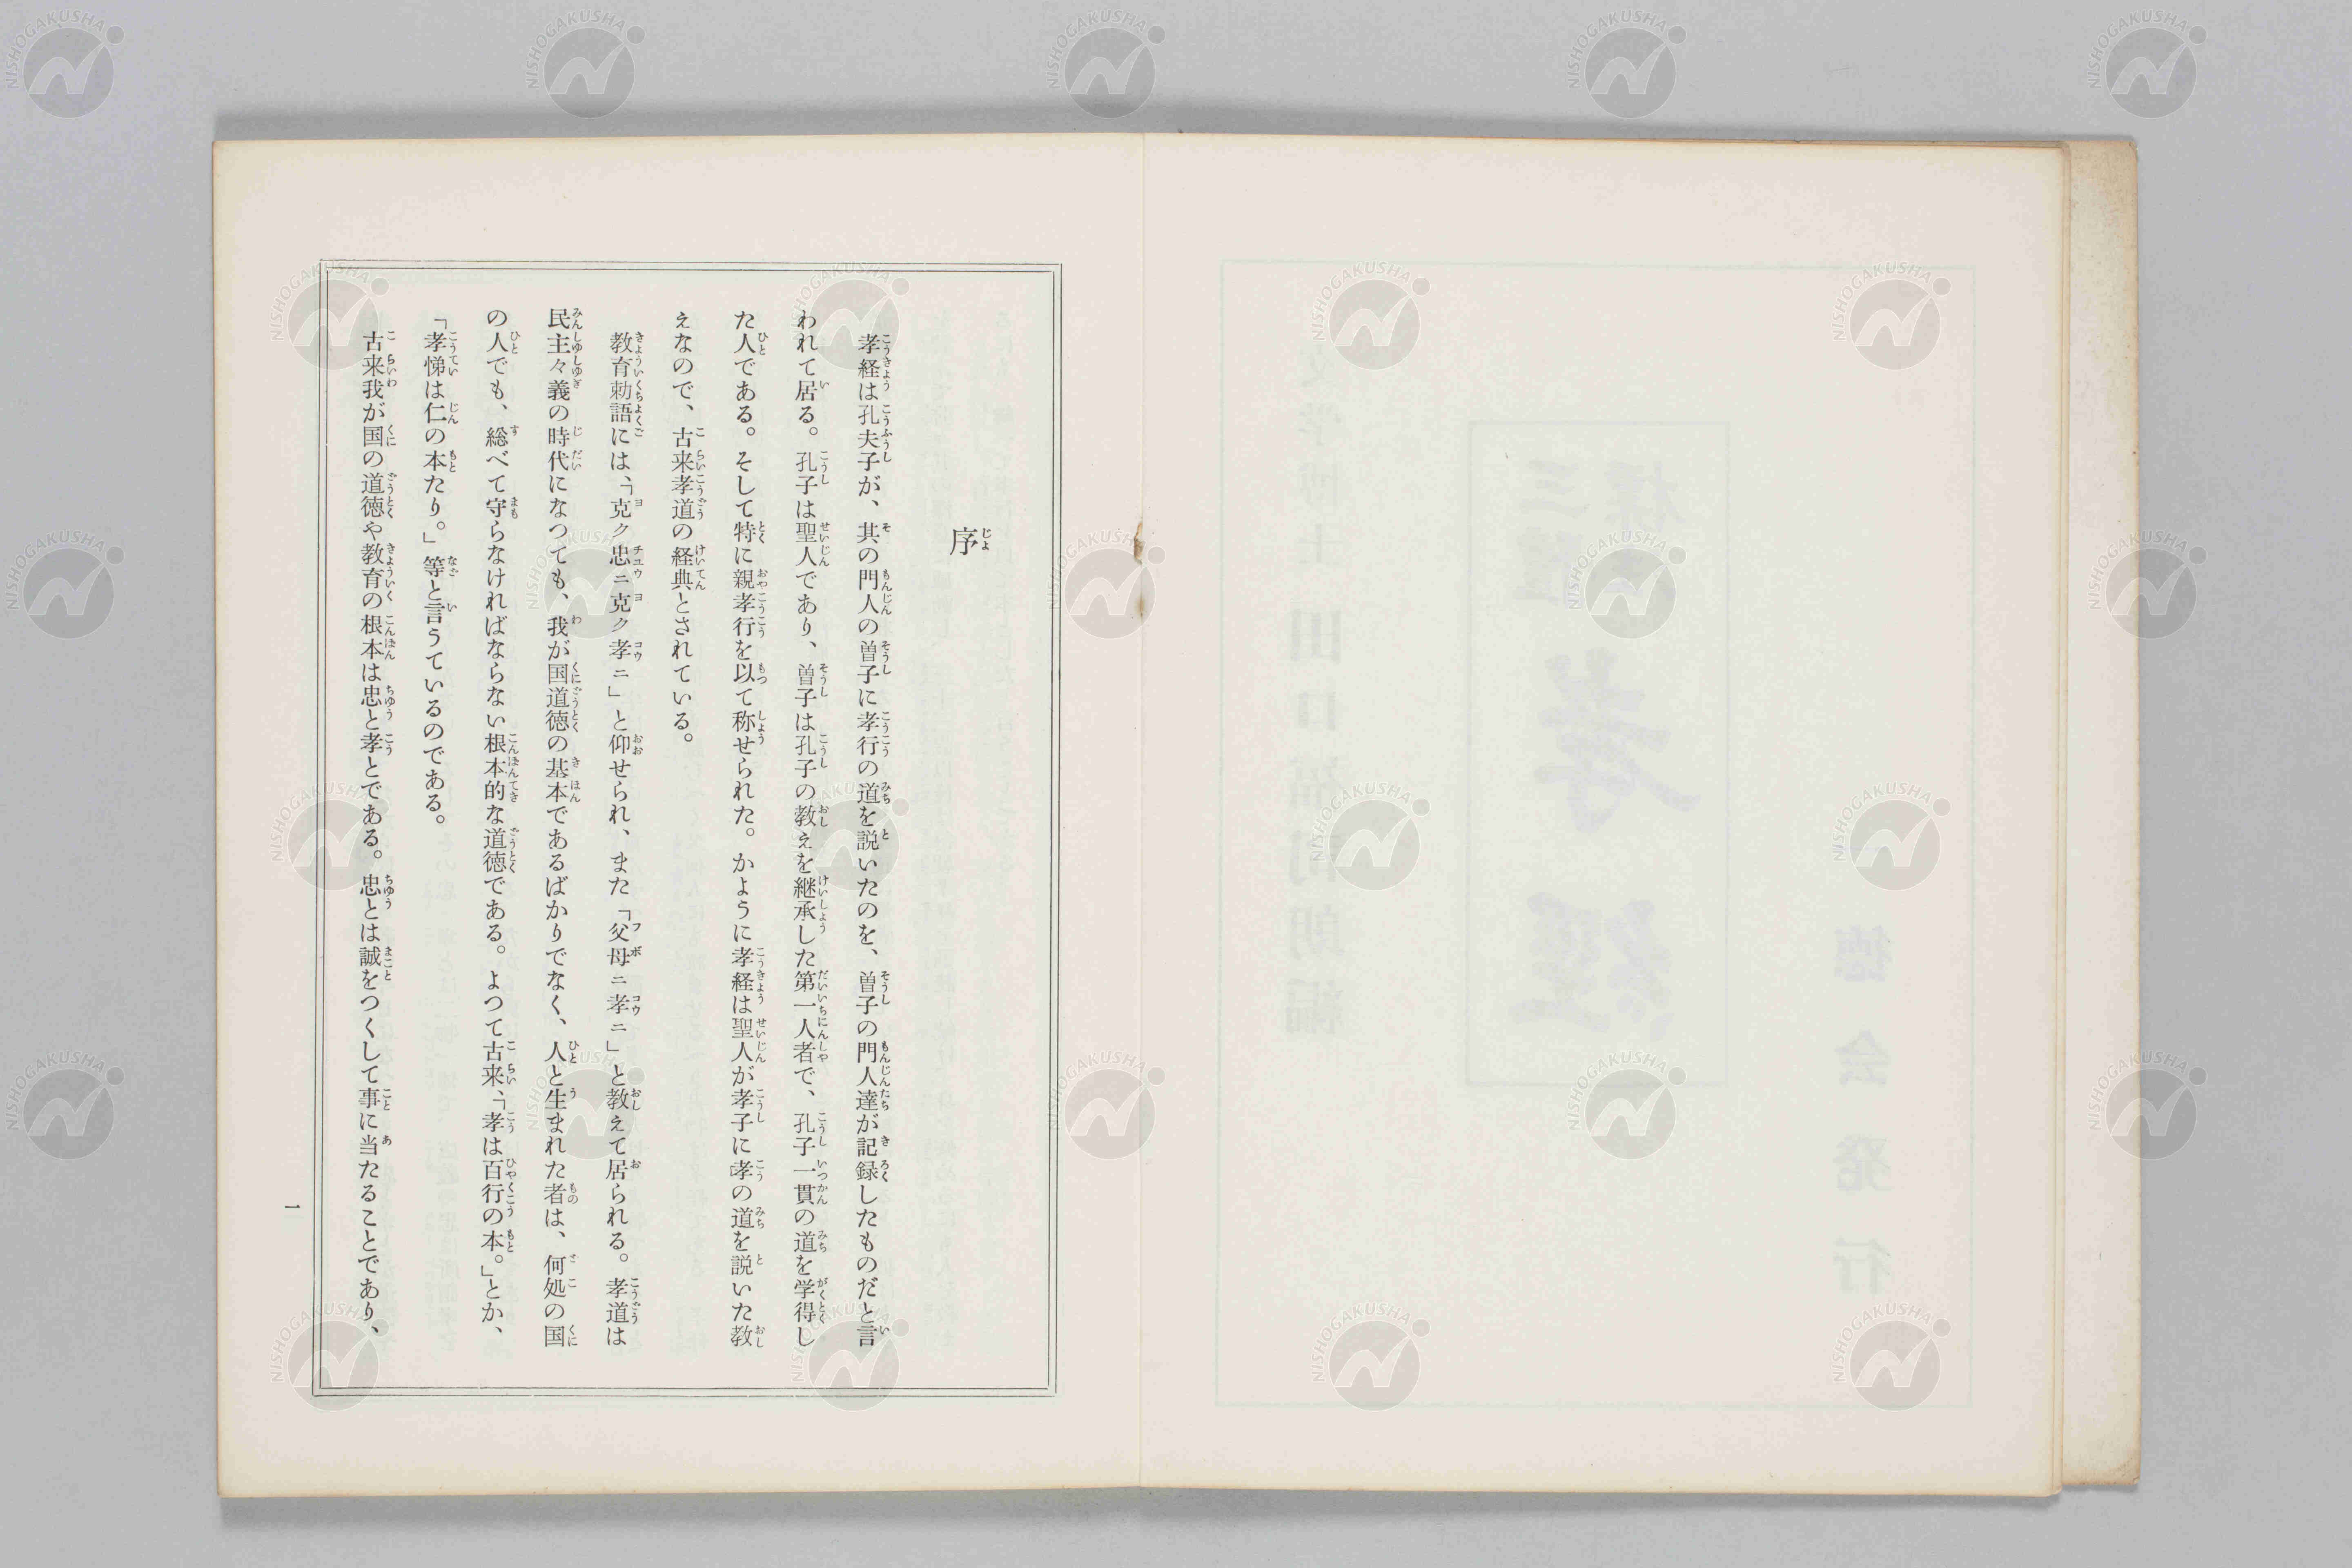 序
孝経は孔夫子が、其の門人の曽子に孝行の道を説いたのを、曽子の門人達が記録したものだと言
われて居る。孔子は聖人であり、曽子は孔子の教えを継承した第一人者で、孔子一貫の道を学得し
た人である。そして特に親孝行を以て称せられた。かように孝経は聖人が孝子に孝の道を説いた教
えなので、古来孝道の経典とされている。
教育勅語には、「克ク忠ニ克ク孝ニ」と仰せられ、また「父母ニ孝ニ」と教えて居られる。孝道は
民主々義の時代になつても、我が国道徳の基本であるばかりでなく、人と生まれた者は、何処の国
の人でも、総べて守らなければならない根本的な道徳である。よつて古来、「孝は百行の本。」とか、
「孝悌は仁の本たり。」等と言うているのである。
古来我が国の道徳や教育の根本は忠と孝とである。忠とは誠をつくして事に当たることであり、
一
NISHOGAKUSHA